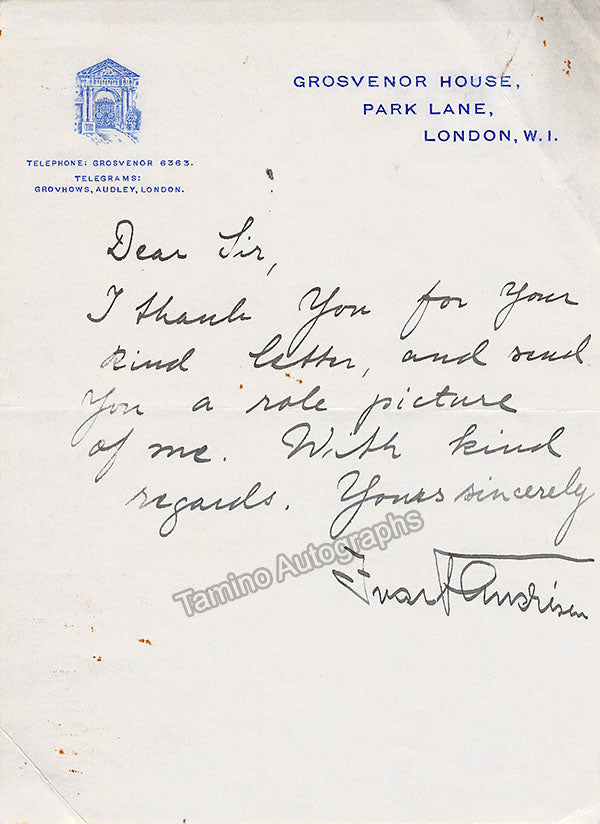 GROSVENOR HOUSE,
PARK LANE,
LONDON, W.1.
TELEPHONE: GROSVENOR 6363.
TELEGRAMS:
GROVHOWS, AUDLEY, LONDON.
Dear Sir,
I thank You for Your
kind letter, and send
You a role picture
of me. With kind
regards. Yours sincerely
Ivar F Andrésen
Tamino Autographs